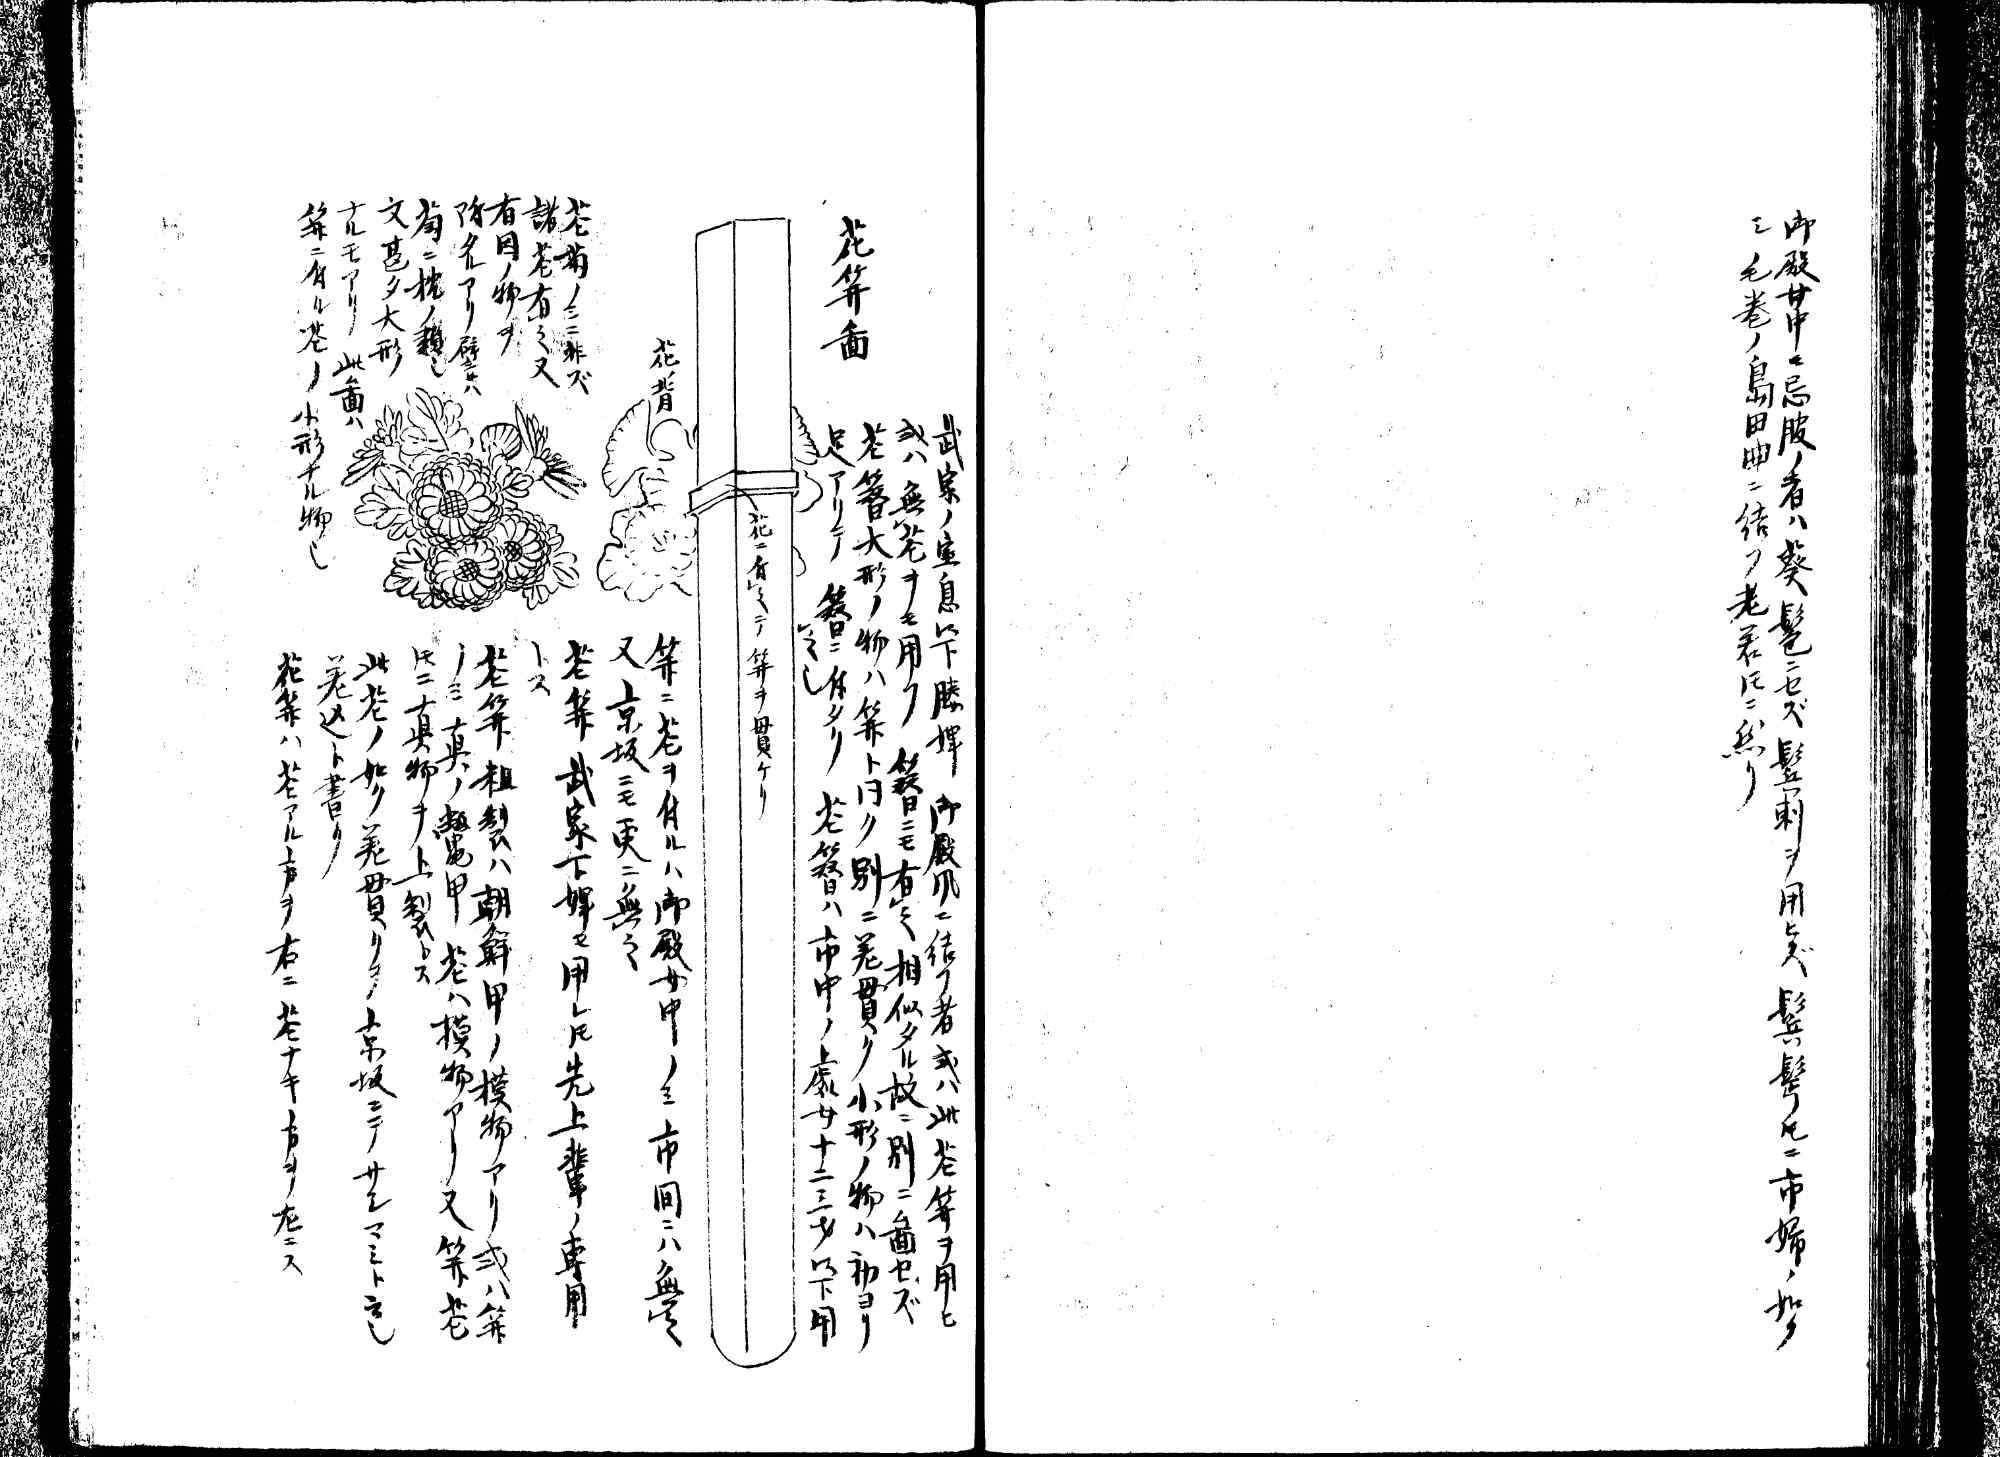 御殿女中モ忌服ノ者ハ葵髱ニセズ髷刺ヲ用ヒズ鬂髱トモニ市婦ノ如ク
三毛巻ノ島田曲ニ結フ老若トモニ然リ
花笄図
武家ノ室息以下媵婢御殿風ニ結フ者或ハ此花笄ヲ用ヒ
或ハ無花ヲモ用フ簪ニモ有之相似タル故ニ別ニ図セズ
花簪大形ノ物ハ笄ト同ク別ニ差貫ク小形ノ物ハ初ヨリ
足アリテ簪ニ付タリ花簪ハ市中ノ処女十二三才以下用
之也
花ニ有之テ笄ヲ貫ケリ
花背
花菊ノミニ非ズ
諸花有之又
有因ノ物ヲ
添タルアリ譬ヘハ
菊ニ枕ノ類也
文甚タ大形
ナルモアリ此図ハ
笄ニ付ル花ノ小形ナル物也
笄ニ花ヲ付ルハ御殿女中ノミ市間ニハ無之
又京坂ニモ更ニ無之
花笄武家下婢モ用レトモ先上輩ノ専用
トス
花笄粗製ハ朝鮮甲ノ模物アリ或ハ笄
ノミ真ノ鼈甲花ハ模物アリ又笄花
トモニ真物ヲ上製トス
此花ノ如ク差貫クヲ京坂ニテサシコミト云也
差込ト書リ
花笄ハ花アル方ヲ右ニ花ナキ方ヲ左ニス